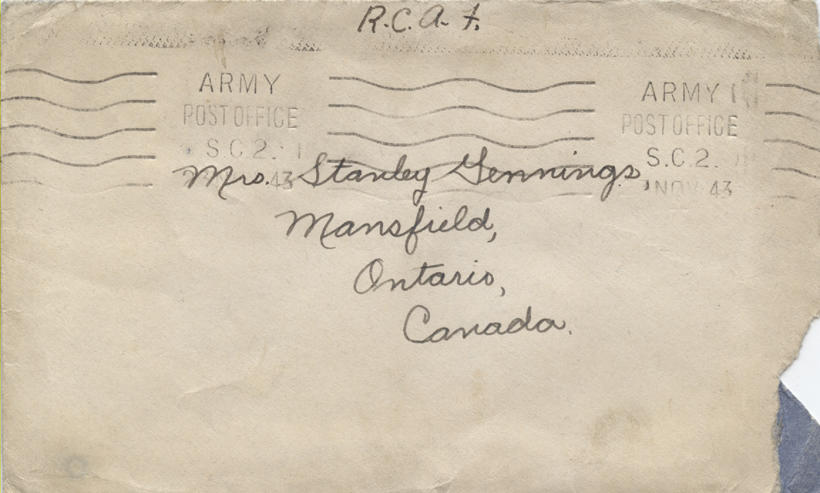 R.C.A.F.
ARMY
POST OFFICE
S.C.2.
43
ARMY
POST OFFICE
S.C.2.
NOV 43
Mrs. Stanley Jennings,
Mansfield,
Ontario,
Canada.